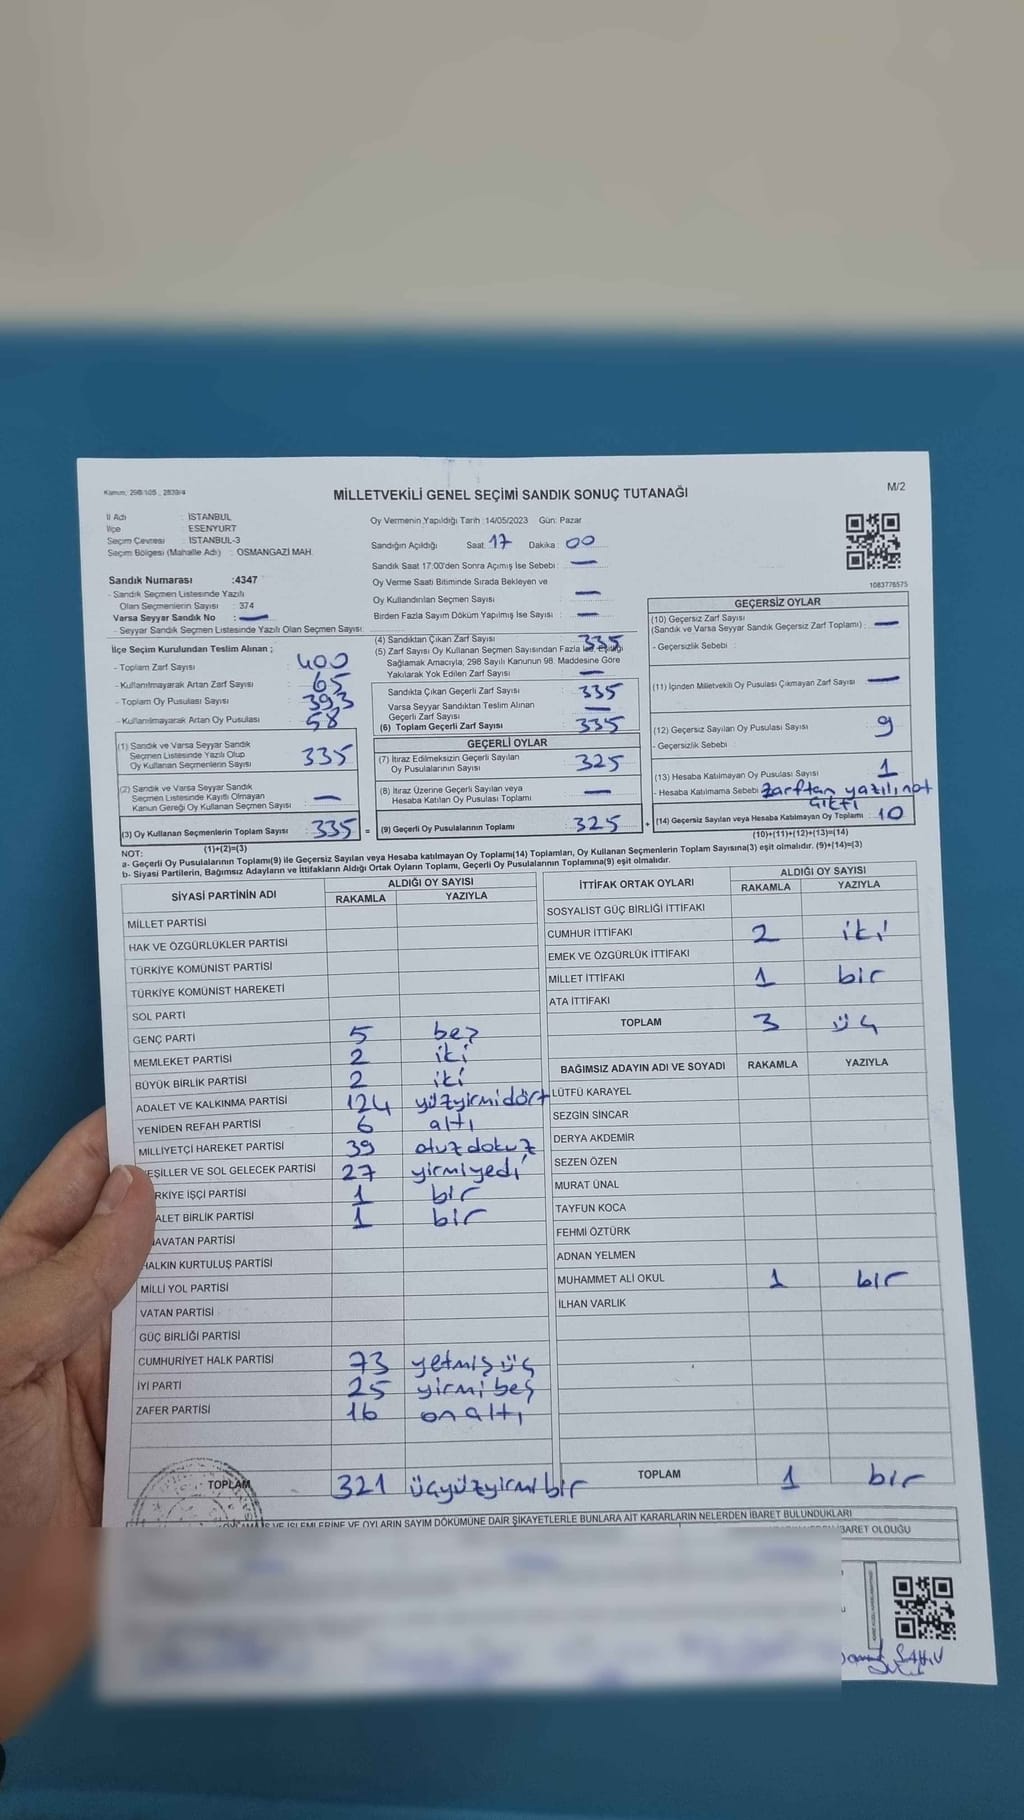 Kanun: 298/105 , 2839/4
MİLLETVEKİLİ GENEL SEÇİMİ SANDIK SONUÇ TUTANAĞI
M/2
İl Adı : İSTANBUL
İlçe : ESENYURT
Seçim Çevresi : İSTANBUL-3
Seçim Bölgesi (Mahalle Adı) : OSMANGAZİ MAH.
Oy Vermenin Yapıldığı Tarih :14/05/2023 Gün: Pazar
Sandığın Açıldığı Saat: 17 Dakika: 00
Sandık Saat 17:00'den Sonra Açımış İse Sebebi : —
Oy Verme Saati Bitiminde Sırada Bekleyen ve
Oy Kullandırılan Seçmen Sayısı : —
Birden Fazla Sayım Döküm Yapılmış İse Sayısı : —
1083778575
Sandık Numarası :4347
- Sandık Seçmen Listesinde Yazılı
Olan Seçmenlerin Sayısı : 374
Varsa Seyyar Sandık No : —
- Seyyar Sandık Seçmen Listesinde Yazılı Olan Seçmen Sayısı:
İlçe Seçim Kurulundan Teslim Alınan ;
- Toplam Zarf Sayısı : 400
- Kullanılmayarak Artan Zarf Sayısı : 65
- Toplam Oy Pusulası Sayısı : 393
- Kullanılmayarak Artan Oy Pusulası : 58
(1) Sandık ve Varsa Seyyar Sandık
Seçmen Listesinde Yazılı Olup
Oy Kullanan Seçmenlerin Sayısı : 335
(2) Sandık ve Varsa Seyyar Sandık
Seçmen Listesinde Kayıtlı Olmayan
Kanun Gereği Oy Kullanan Seçmen Sayısı : —
(3) Oy Kullanan Seçmenlerin Toplam Sayısı : 335 =
(1)+(2)=(3)
(4) Sandıktan Çıkan Zarf Sayısı : 335
(5) Zarf Sayısı Oy Kullanan Seçmen Sayısından Fazla İse, Eşitliği
Sağlamak Amacıyla, 298 Sayılı Kanunun 98. Maddesine Göre
Yakılarak Yok Edilen Zarf Sayısı : —
Sandıkta Çıkan Geçerli Zarf Sayısı : 335
Varsa Seyyar Sandıktan Teslim Alınan
Geçerli Zarf Sayısı : —
(6) Toplam Geçerli Zarf Sayısı : 335
GEÇERLİ OYLAR
(7) İtiraz Edilmeksizin Geçerli Sayılan
Oy Pusulalarının Sayısı : 325
(8) İtiraz Üzerine Geçerli Sayılan veya
Hesaba Katılan Oy Pusulası Toplamı : —
(9) Geçerli Oy Pusulalarının Toplamı : 325 +
GEÇERSİZ OYLAR
(10) Geçersiz Zarf Sayısı
(Sandık ve Varsa Seyyar Sandık Geçersiz Zarf Toplamı) : —
- Geçersizlik Sebebi :
(11) İçinden Milletvekili Oy Pusulası Çıkmayan Zarf Sayısı : —
(12) Geçersiz Sayılan Oy Pusulası Sayısı : 9
- Geçersizlik Sebebi :
(13) Hesaba Katılmayan Oy Pusulası Sayısı : 1
- Hesaba Katılmama Sebebi : Zarftan yazılı not
çıktı
(14) Geçersiz Sayılan veya Hesaba Katılmayan Oy Toplamı : 10
(10)+(11)+(12)+(13)=(14)
NOT:
a- Geçerli Oy Pusulalarının Toplamı(9) ile Geçersiz Sayılan veya Hesaba katılmayan Oy Toplamı(14) Toplamları, Oy Kullanan Seçmenlerin Toplam Sayısına(3) eşit olmalıdır. (9)+(14)=(3)
b- Siyasi Partilerin, Bağımsız Adayların ve İttifakların Aldığı Ortak Oyların Toplamı, Geçerli Oy Pusulalarının Toplamına(9) eşit olmalıdır.
SİYASİ PARTİNİN ADI
ALDIĞI OY SAYISI
RAKAMLA YAZIYLA
MİLLET PARTİSİ
HAK VE ÖZGÜRLÜKLER PARTİSİ
TÜRKİYE KOMÜNİST PARTİSİ
TÜRKİYE KOMÜNİST HAREKETİ
SOL PARTİ
GENÇ PARTİ 5 beş
MEMLEKET PARTİSİ 2 iki
BÜYÜK BİRLİK PARTİSİ 2 iki
ADALET VE KALKINMA PARTİSİ 124 yüzyirmidört
YENİDEN REFAH PARTİSİ 6 altı
MİLLİYETÇİ HAREKET PARTİSİ 39 otuzdokuz
EŞİLLER VE SOL GELECEK PARTİSİ 27 yirmiyedi
RKİYE İŞÇİ PARTİSİ 1 bir
ALET BİRLİK PARTİSİ 1 bir
AVATAN PARTİSİ
HALKIN KURTULUŞ PARTİSİ
MİLLİ YOL PARTİSİ
VATAN PARTİSİ
GÜÇ BİRLİĞİ PARTİSİ
CUMHURİYET HALK PARTİSİ 73 yetmişüç
İYİ PARTİ 25 yirmibeş
ZAFER PARTİSİ 16 onaltı
TOPLAM 321 üçyüzyirmibir
İTTİFAK ORTAK OYLARI
ALDIĞI OY SAYISI
RAKAMLA YAZIYLA
SOSYALİST GÜÇ BİRLİĞİ İTTİFAKI
CUMHUR İTTİFAKI 2 iki
EMEK VE ÖZGÜRLÜK İTTİFAKI
MİLLET İTTİFAKI 1 bir
ATA İTTİFAKI
TOPLAM 3 üç
BAĞIMSIZ ADAYIN ADI VE SOYADI RAKAMLA YAZIYLA
LÜTFÜ KARAYEL
SEZGİN SİNCAR
DERYA AKDEMİR
SEZEN ÖZEN
MURAT ÜNAL
TAYFUN KOCA
FEHMİ ÖZTÜRK
ADNAN YELMEN
MUHAMMET ALİ OKUL 1 bir
İLHAN VARLIK
TOPLAM 1 bir
VE İŞLEMLERİNE VE OYLARIN SAYIM DÖKÜMÜNE DAİR ŞİKAYETLERLE BUNLARA AİT KARARLARIN NELERDEN İBARET BULUNDUKLARI
BARET OLDUĞU